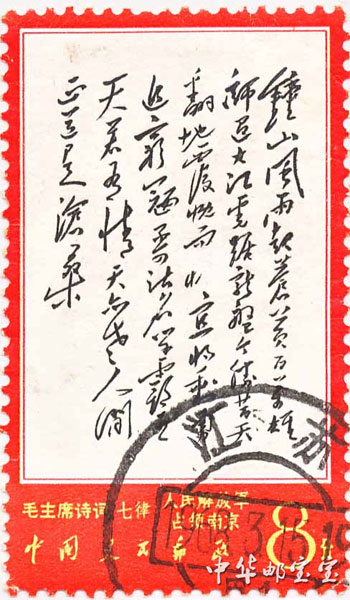 鐘山風雨起蒼黃百万雄
師过大江虎踞龍盤今勝昔天
翻地覆慨而慷宜将剩勇
追窮寇不可沽名学霸王
天若有情天亦老人間
正道是滄桑
毛主席诗词 七律 人民解放军
占领南京
中国人民邮政
8分
江苏
中华邮宝宝